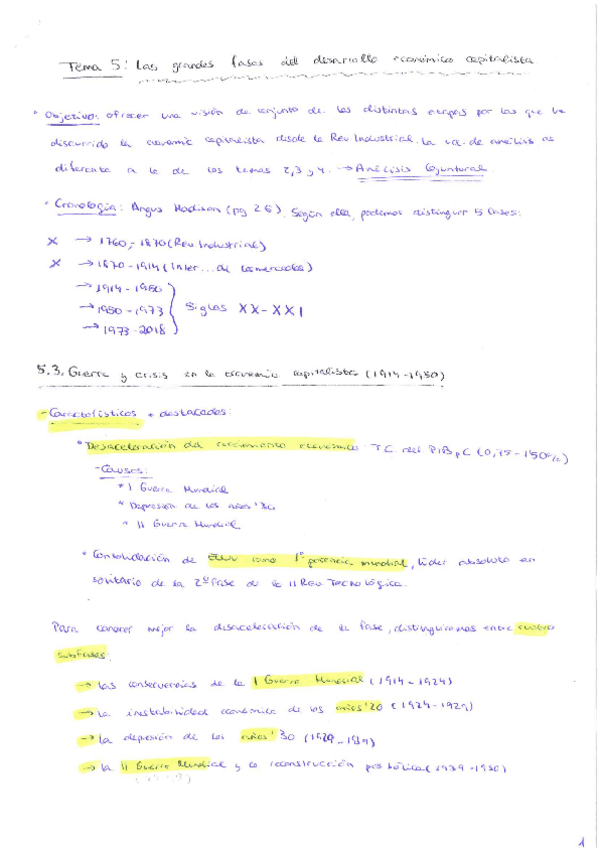 Tema 5: Las grandes fases del desarrollo económico capitalista
• Objetivo: ofrecer una visión de conjunto de las distintas etapas por las que ha
discurrido la economía capitalista desde la Rev Industrial. La de análisis es
diferente a la de los temas 2,3 y 4. → Análisis Coyuntural.
• Cronología: Angus Madison (pg 26). Según ella, podemos distinguir 5 fases:
x → 1760,-1870 (Rev Industrial)
x → 1870-1914 (Inter... de los mercados)
→ 1914-1950
→ 1950-1973 Siglos XX-XXI
→ 1973-2018
5.3. Guerra y crisis en la economía capitalista (1914-1950)
- Características + destacadas:
• Desaceleración del crecimiento económico TC del PIB pC
- Causas:
• I Guerra Mundial
• Depresión de los años '30
• II Guerra Mundial
• Consolidación de EEUU como 1ª potencia mundial, líder absoluto en
solitario de la 2ª fase de la II Rev Tecnológica.
Para conocer mejor la desaceleración de la fase, distinguiremos entre cuatro
subfases:
→ Las consecuencias de la I Guerra Mundial (1914-1924)
→ La inestabilidad económica de los años '20 (1924-1929)
→ La depresión de los años '30 (1929-1939)
→ La II Guerra Mundial y la reconstrucción postbélica (1939-1950)
1